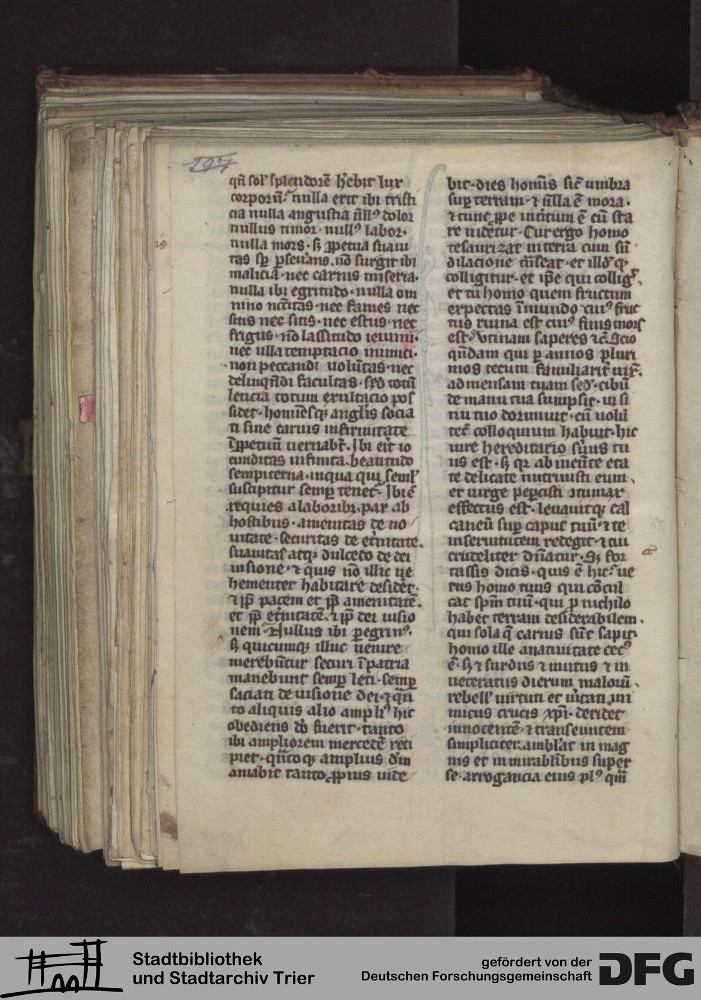 197
qn̄ sol' splendorē h̄ebit lux
corporū. nulla erit ibi tristi
cia nulla angustia nll's dolor
nullus timor. null's labor.
nulla mors. s; ꝑpetua suaui
tas sp̄ ꝑseuerans. nō surgit ibi
malicia. nec carnis miseria.
nulla ibi egritudo. nulla om
nino nc̄citas. nec fames nec
sitis nec estus. nec
frigus. nō lassitudo ieiunii.
nec ulla temptacio inimici.
non peccandi uolūtas. nec
delinqn̄di facultas. sed totū
leticia totum exultacio pos
sidet. hominesq; anglis socia
ti sine carnis infirmitate
ī ꝑpetuū uernabt̄. Ibi erit io
cunditas infinita. beatitudo
sempiterna. in qua qui semel
suscipitur semꝑ tenet̄. Ibi ē
requies a laborib;. pax ab
hostibus. amenitas de no
uitate. securitas de et̄nitate.
suauitas atq; dulcedo de dei
uisione. ⁊ quis nō illic ue
hementer habitare desidet̄.
⁊ ꝓp̄ pacem et ꝓp̄ amenitatē.
et ꝓp̄ et̄nitatē. ⁊ ꝓp̄ dei uisio
nem. Nullus ibi ꝑegrin's.
s; quicumq; illuc uenire
merebūtur securi ī patria
manebunt semꝑ leti. semꝑ
saciati de uisione dei. ⁊ qn̄
to aliquis alio ampli's hic
obediens dō fuerit. tanto
ibi ampliorem mercedē reci
piet. qn̄toq; amplius dm̄
amabit tanto ꝓpius uide
bit. dies homīs sic̄ umbra
suꝑ terram. ⁊ nlla ē mora.
⁊ tunc ꝓpe īcitum ē cū sta
re uidetur. Cur ergo homo
tesaurizat in terra cum sn̄
dilacione tn̄seat. et illd' q'
colligitur. et ip̄e qui colliḡ.
et tu homo quem fructum
expectas ī mundo cui's fruc
tus ruina est cui's finis mors
est. Utinam saperes ⁊c̄. Scio
qn̄dam qui ꝑ annos pluri
mos tecum familiarit̄ uix̄.
ad mensam tuam sed'. cibū
de manu tua sumpsit. in si
nu tuo dormiuit. cū uolu
it tec̄ colloquium habuit. hic
iure hereditario s̄uus tu
us est. s; q' ab ineūte eta
te delicate nutriuisti eum.
et uirge peꝑcisti ↄtumax
effectus est. leuauitq; cal
caneū suꝑ caput tuū. ⁊ te
in seruitutem redegit. ⁊ tui
crudeliter dn̄atur. S; for
tassis dicis. quis ē hic. ue
tus homo tuus qui cōcul
cat sp̄m tuū. qui ꝓ nichilo
habet terram desiderabilem.
qui sola q̄ carnis sūt sapit.
homo ille a natiuitate cec's
ē. s; ⁊ surdus ⁊ mutus ⁊ in
ueteratus dierum malorū.
rebell' uirtuti et ūitati. ini
micus crucis xp̄i. deridet
innocentē ⁊ transeuntem
simpliciter. ambl'at in mag
nis et in mirablibus super
se. arrogancia eius pl's qm̄
Stadtbibliothek
und Stadtarchiv Trier
gefördert von der
Deutschen Forschungsgemeinschaft
DFG